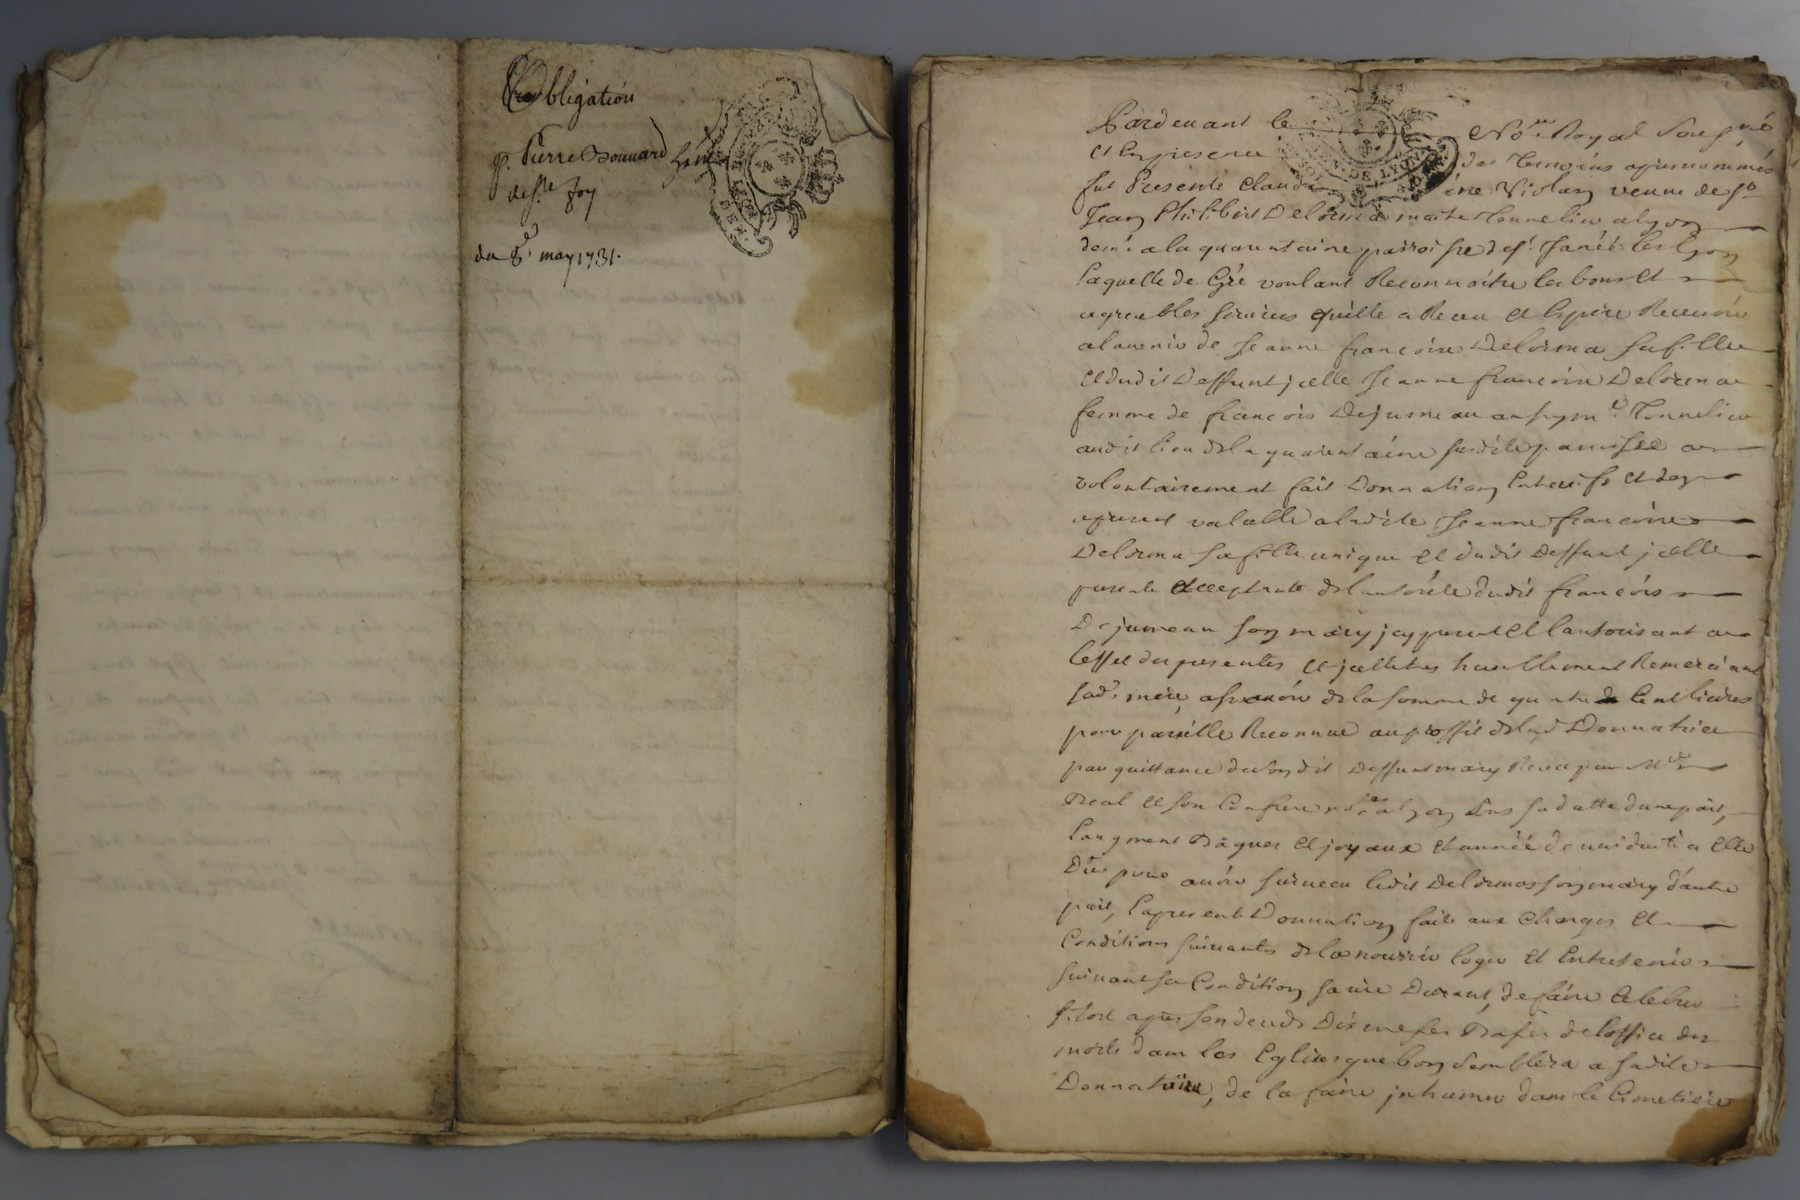 Obligation
p. Pierre Bonnard
de Ste. Foy
du 8e. may 1731.
Pardevant le No.re Royal Sousigné
et En presence des temoins apresnommés
fut Presente Claudine Violay veuve de Sr.
Jean Philibert Delorma maitre tonnelier a lyon
dem.t a la quarentaine parroisse de St. lés Lyon
laquelle de Gré voulant Reconnoitre les bons et
agreables services qu'elle a Receu et Espere Recevoir
a lavenir de Jeanne francoise Delorma sa fille
et dudit Deffunt jcelle Jeanne francoise Delorma
femme de francois Dejumeau aussy m.e Tonnelier
audit lieu de la quarentaine susditte parroisse a
volontairement fait Donnation Entrevifs et des
apresent valable a ladite Jeanne francoise
Delorma sa fille unique et dudit Deffunt jcelle
presente et acceptante de lautorité dudit francois
Dejumeau son mary jcy present et lautorisant a
leffet des presentes et jcelle tres humblement Remerciant
sad. mere, a scavoir de la somme de quatre Cent livres
pour pareille Reconnue au proffit de lad Donnatrice
par quittance de sondit Deffunt mary Receu par M.e
Real et son Confrere no.res a lyon sous sa datte dune part,
laugment Bagues et joyaux et année de viduité a Elle
Dus pour avoir survecu ledit Delorma son mary d'autre
part, la presente Donnation faite aux Charges et
Conditions suivantes de la nourrir loger et Entretenir
suivant sa Condition sa vie Durant, de faire Celebrer
sitost apres son deceds Dix messes Basses de loffice des
morts dans les Eglises que bon semblera a sadite
Donnataire, de la faire jnhumer dans le Cimetiere